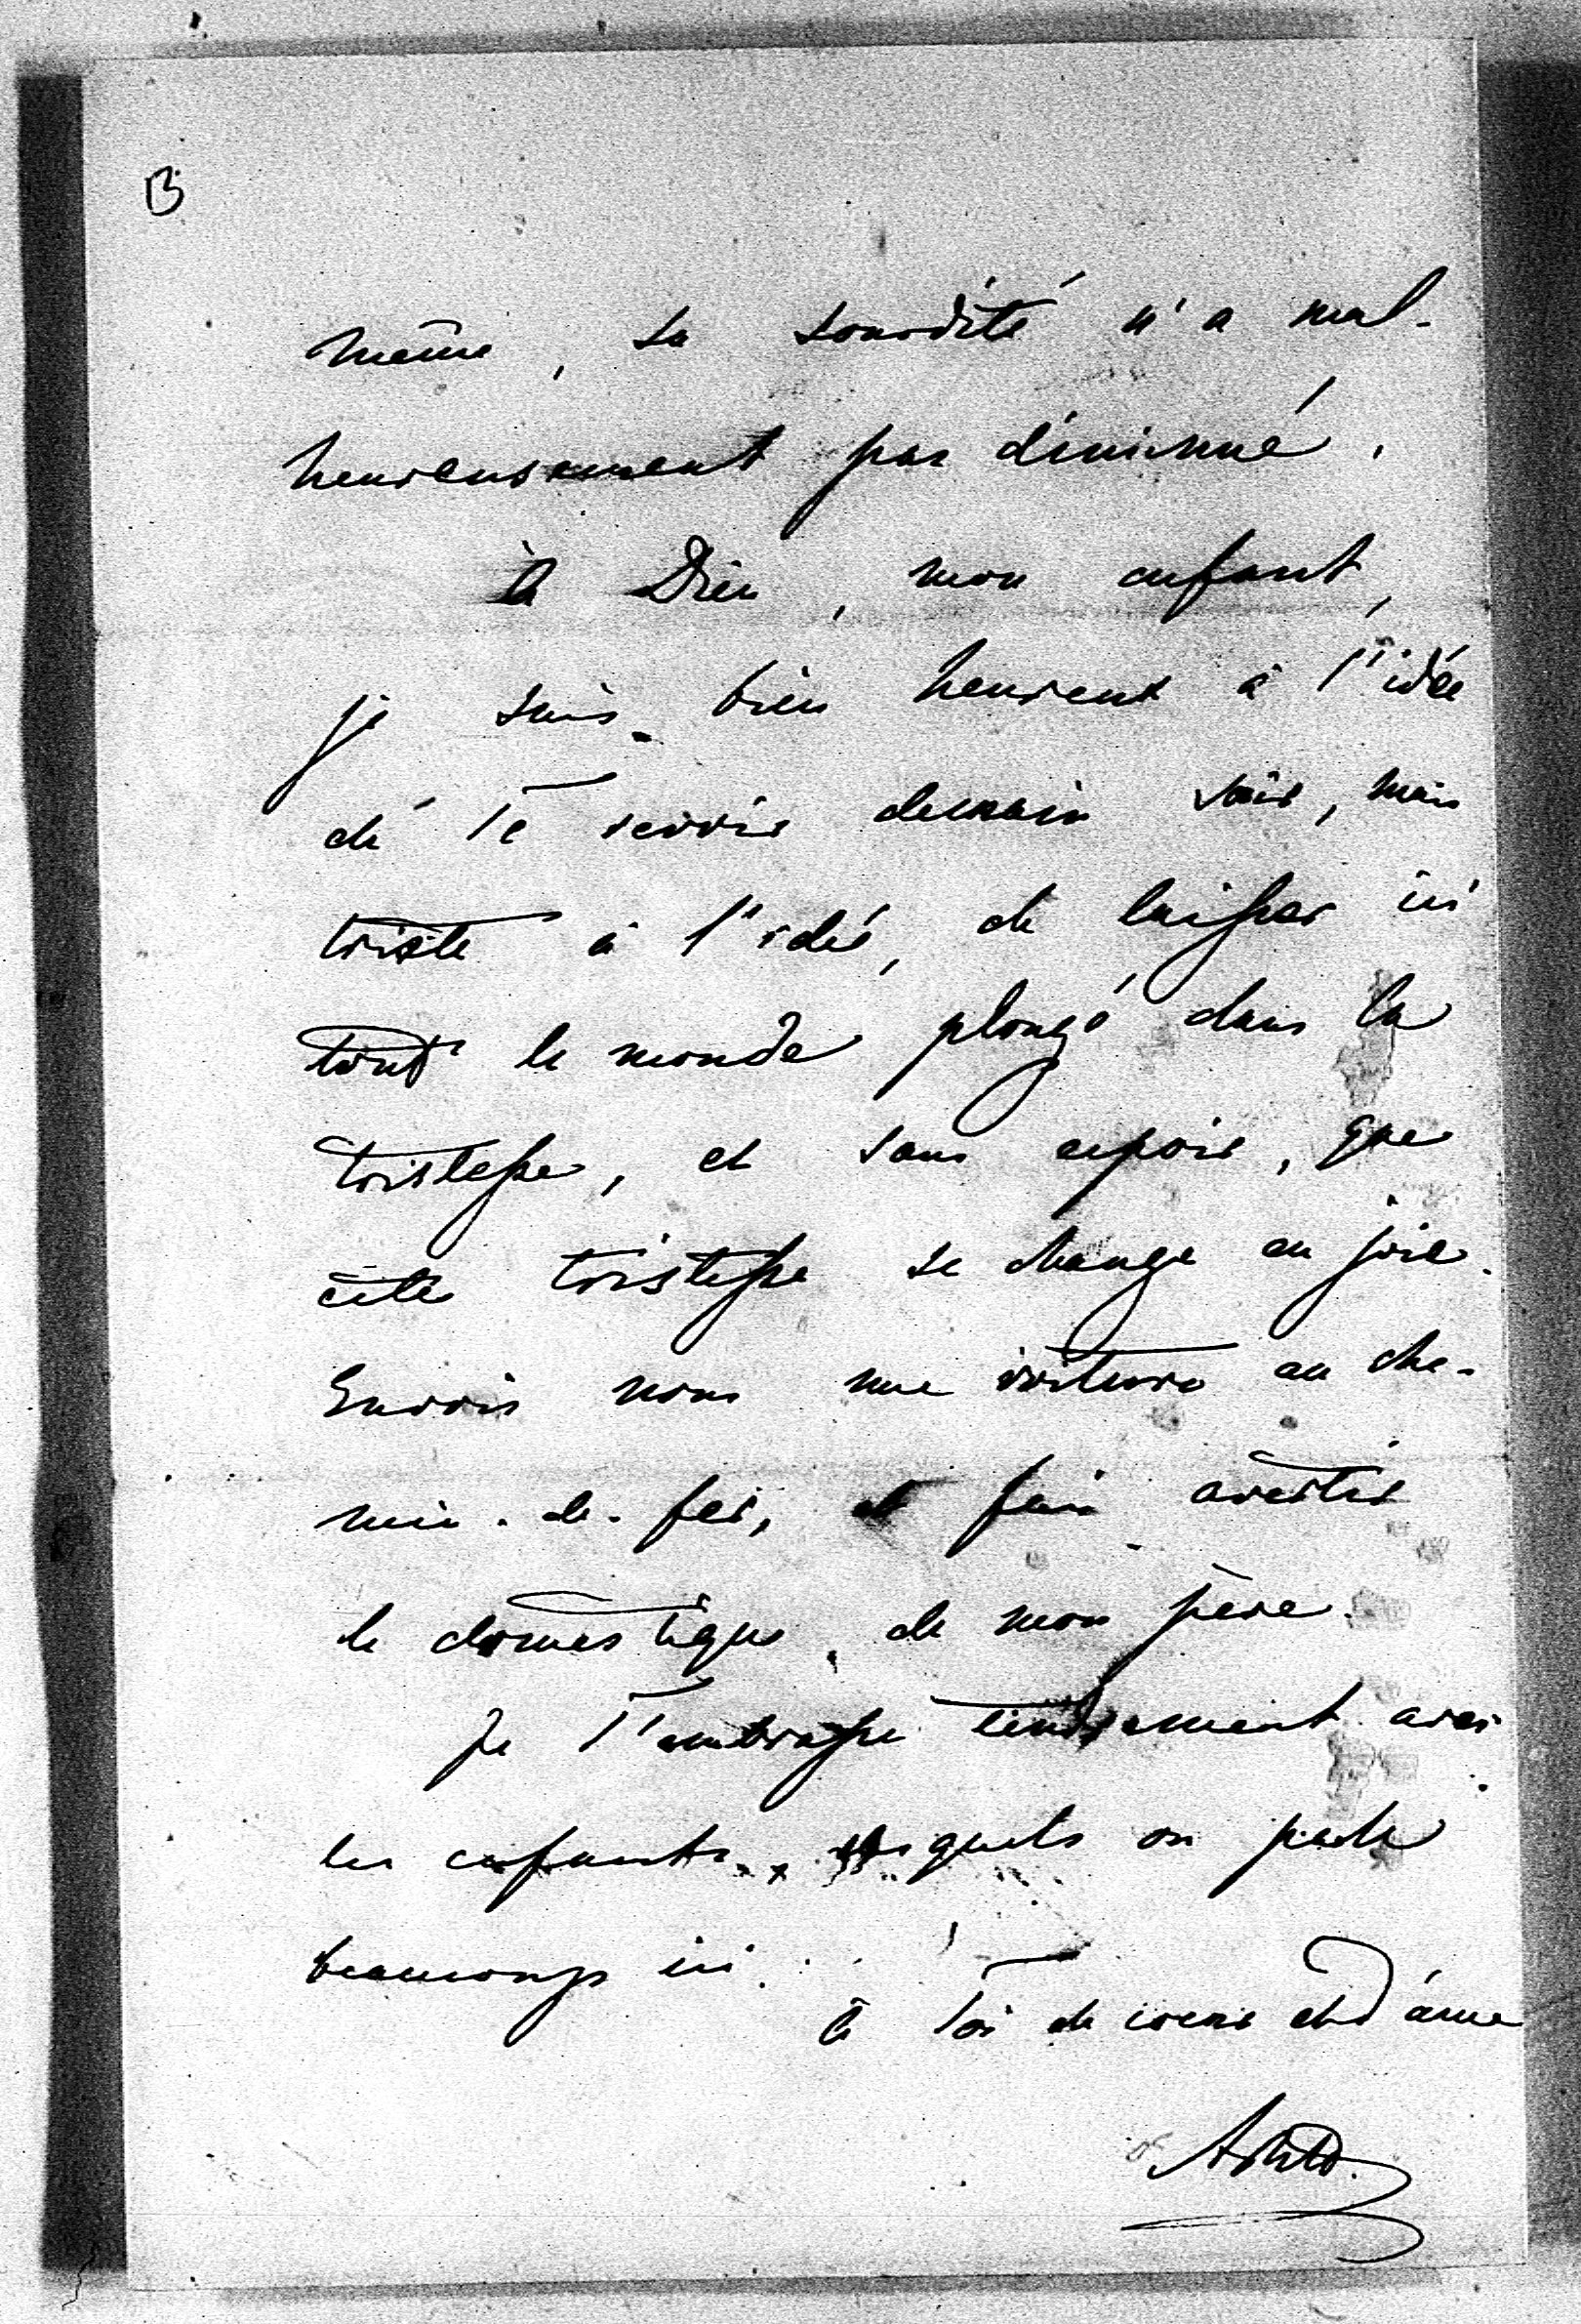 B
même, sa sourdité n'a mal-
heureusement pas diminué.
à Dieu, mon enfant,
je suis bien heureux à l'idée
de te revoir demain soir, mais
triste à l'idée, de laisser ici
tout le monde plongé dans la
tristesse, et sans espoir, que
cette tristesse se change en joie.
Envois nous une voiture au che-
min-de-fer, et fais avertir
le domestique de mon père.
Je t'embrasse tendrement avec
les enfants, desquels on parle
beaucoup ici.
à toi de coeur et d'âme